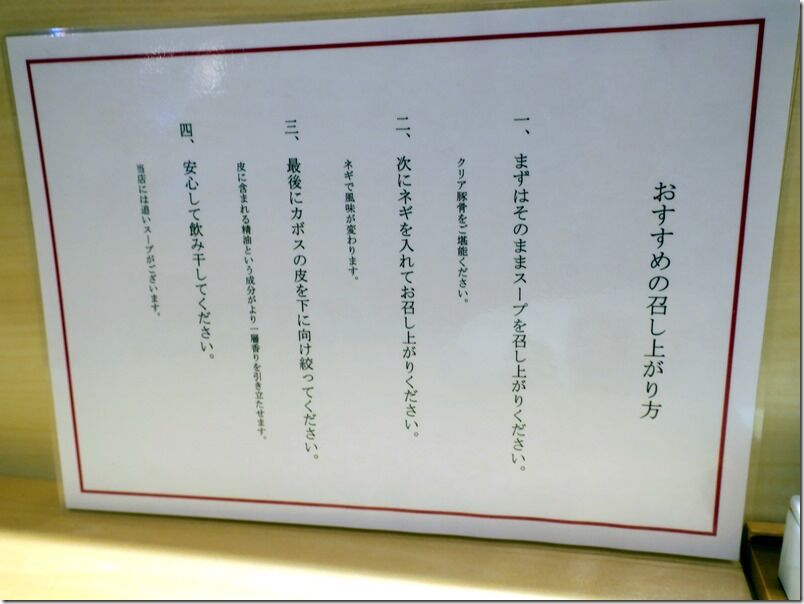 おすすめの召し上がり方
一、まずはそのままスープを召し上がりください。
クリア豚骨をご堪能ください。
二、次にネギを入れてお召し上がりください。
ネギで風味が変わります。
三、最後にカボスの皮を下に向け絞ってください。
皮に含まれる精油という成分がより一層香りを引き立たせます。
四、安心して飲み干してください。
当店には追いスープがございます。